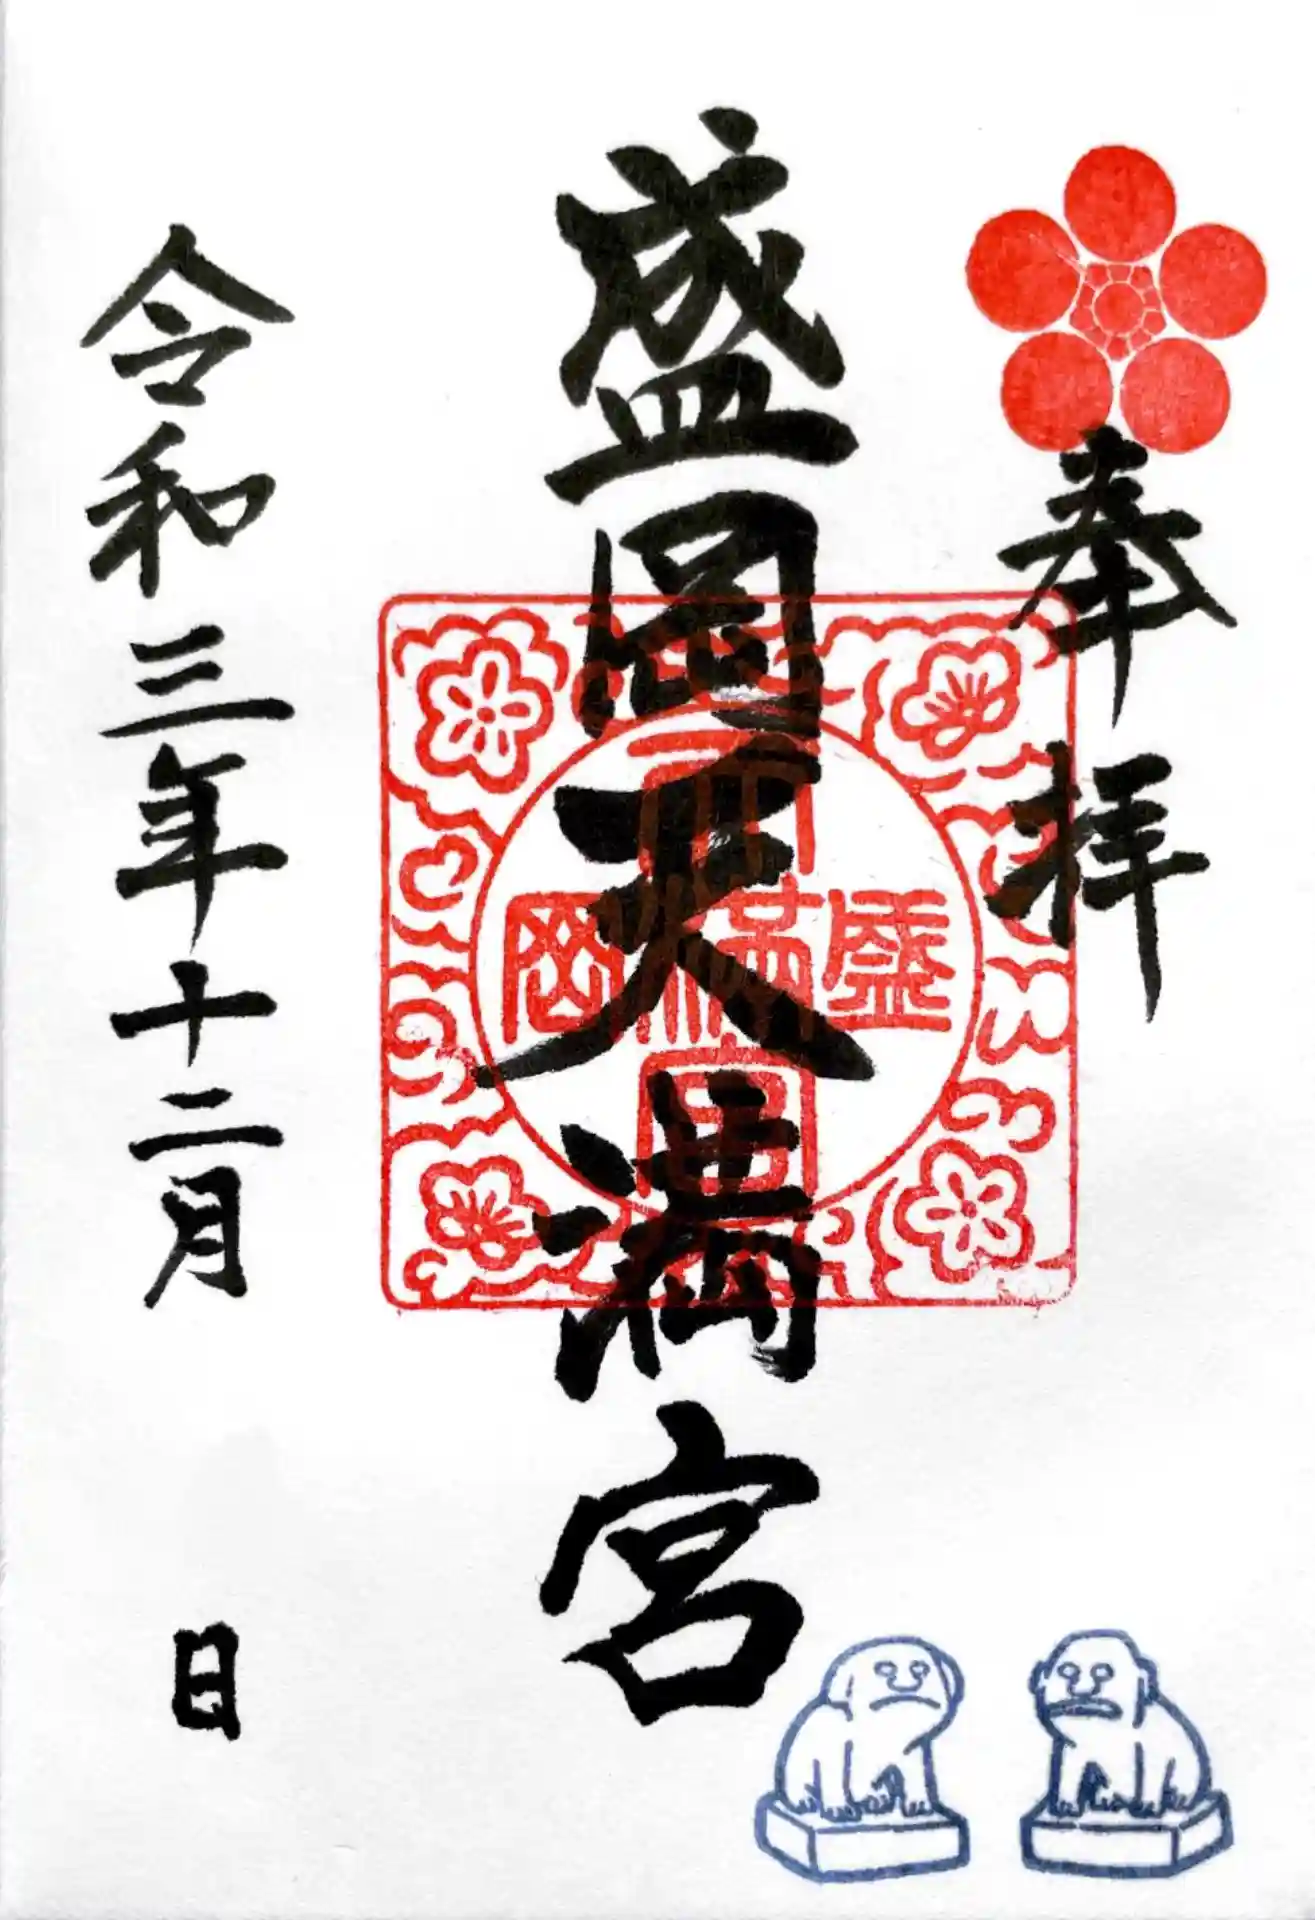 奉拝
盛岡天満宮
盛岡
天満宮
令和三年十二月 日